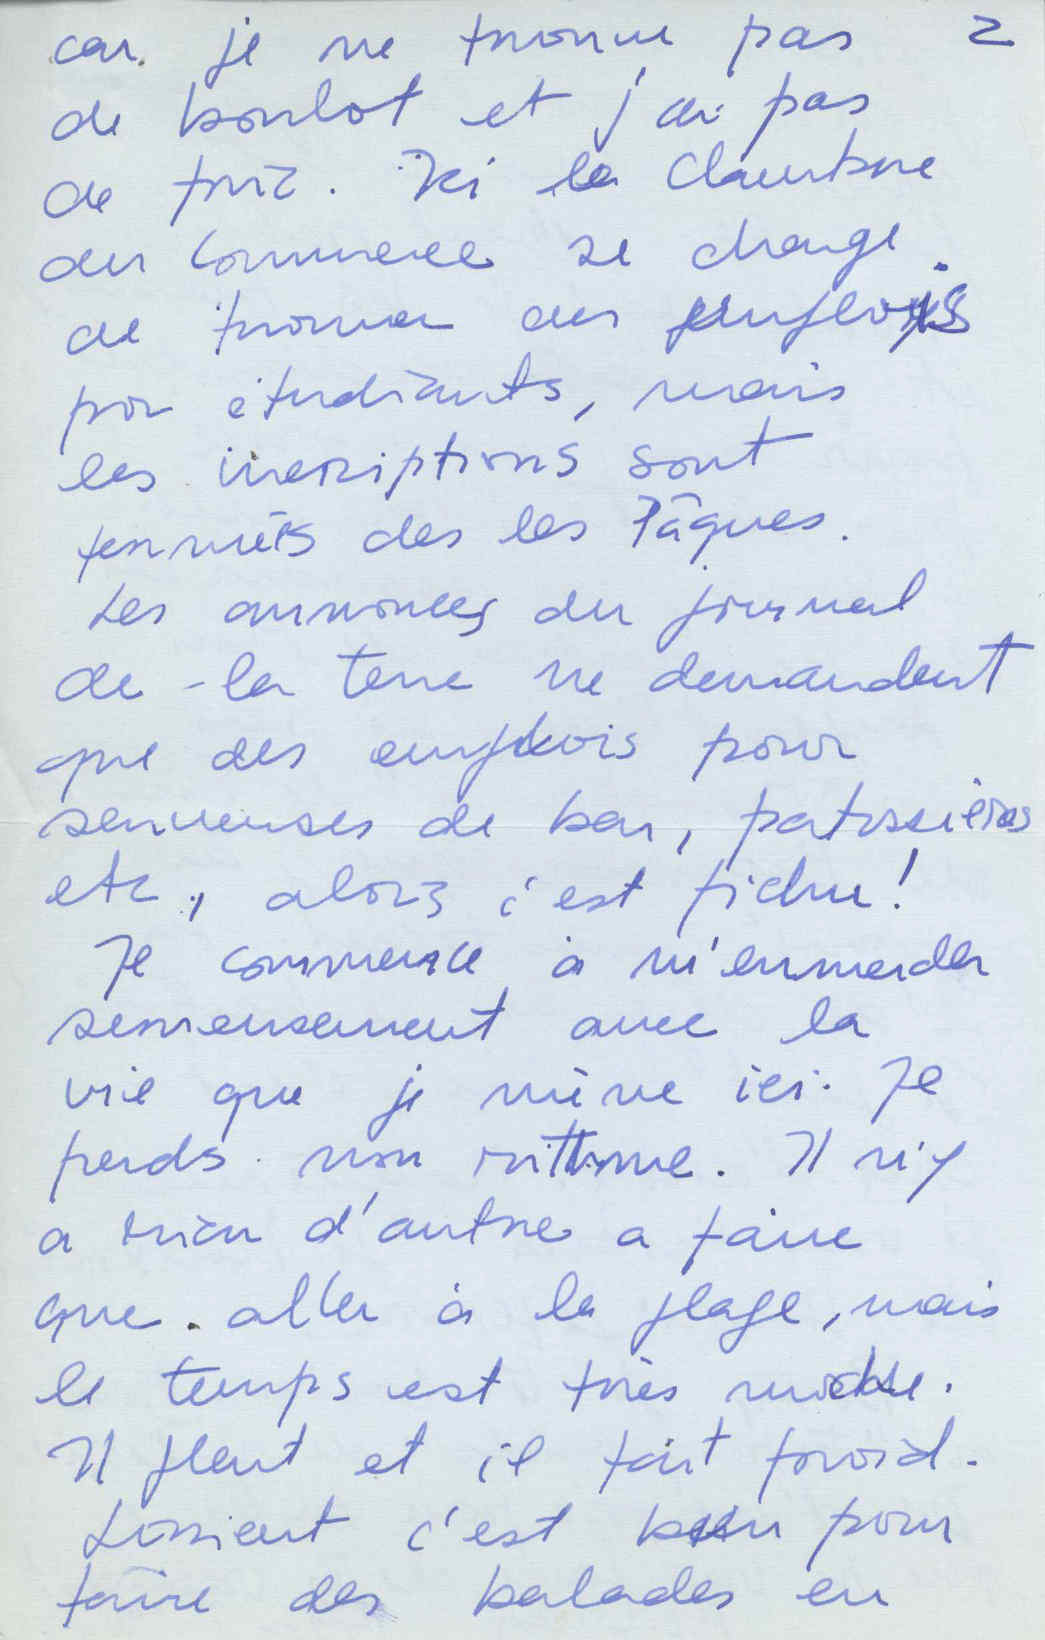 car je ne trouve pas 2
de boulot et j'ai pas
de fric. Ici la Chambre
du Commerce se charge
de trouver des emplois
pour étudiants, mais
les inscriptions sont
fermés des les Pâques.
Les annonces du journal
de la terre ne demandent
que des emplois pour
serveuses de bar, patissières
etc., alors c'est fichu!
Je commence à m'enmerder
serieusement avec la
vie que je mène ici. Je
perds mon rithme. Il n'y
a rien d'autre a faire
que aller à la plage, mais
le temps est très moche.
Il pleut et il fait froid.
Lorient c'est bien pour
faire des balades en